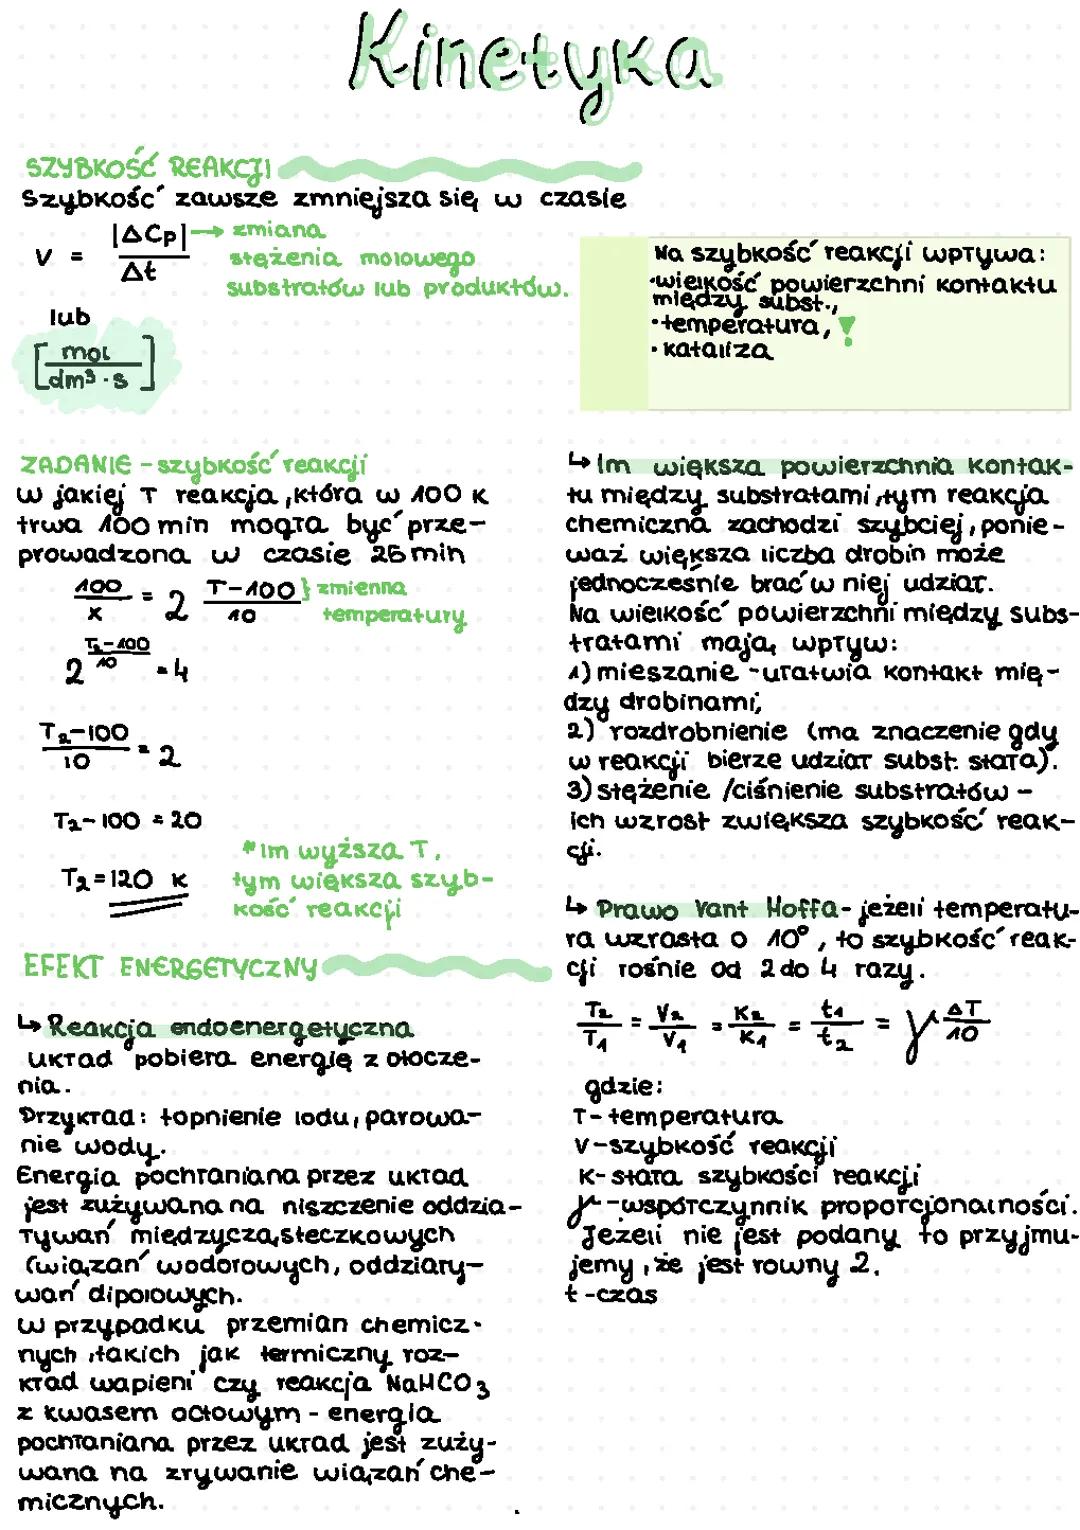 Kinetyka
SZYBKOŚĆ REAKCJI
Szybkość zawsze zmniejsza się w czasie
V = |ΔCp| / Δt → zmiana
stężenia molowego
substratów lub produktów.
lub
[mol / dm³·s]
Na szybkość reakcji wpływa:
•wielkość powierzchni kontaktu
między subst.,
•temperatura, !
•kataliza
ZADANIE - szybkość reakcji
w jakiej T reakcja, która w 100 K
trwa 100 min mogła być prze-
prowadzona w czasie 25 min
100/x = 2 T-100/10 } zmienna
temperatury
2^(T₂-100/10) = 4
T₂-100/10 = 2
T₂-100 = 20
T₂=120 K
*im wyższa T,
tym większa szyb-
kość reakcji
EFEKT ENERGETYCZNY
↳ Reakcja endoenergetyczna
układ pobiera energię z otocze-
nia.
Przykład: topnienie lodu, parowa-
nie wody.
Energia pochłaniana przez układ
jest zużywana na niszczenie oddzia-
ływań międzycząsteczkowych
(wiązań wodorowych, oddziały-
wań dipolowych.
w przypadku przemian chemicz-
nych, takich jak termiczny roz-
kład wapieni czy reakcja NaHCO₃
z kwasem octowym - energia
pochłaniana przez układ jest zuży-
wana na zrywanie wiązań che-
micznych.
↳ Im większa powierzchnia kontak-
tu między substratami, tym reakcja
chemiczna zachodzi szybciej, ponie-
waż większa liczba drobin może
jednocześnie brać w niej udział.
Na wielkość powierzchni między subs-
tratami mają wpływ:
1) mieszanie - ułatwia kontakt mię-
dzy drobinami;
2) rozdrobnienie (ma znaczenie gdy
w reakcji bierze udział subst. stała).
3) stężenie /ciśnienie substratów -
ich wzrost zwiększa szybkość reak-
cji.
↳ Prawo Vant Hoffa - jeżeli temperatu-
ra wzrasta o 10°, to szybkość reak-
cji rośnie od 2 do 4 razy.
T₂/T₁ = V₂/V₁ = K₂/K₁ = t₁/t₂ = γ ΔT/10
gdzie:
T - temperatura
V - szybkość reakcji
K - stała szybkości reakcji
γ - współczynnik proporcjonalności.
Jeżeli nie jest podany to przyjmu-
jemy, że jest równy 2.
t - czas